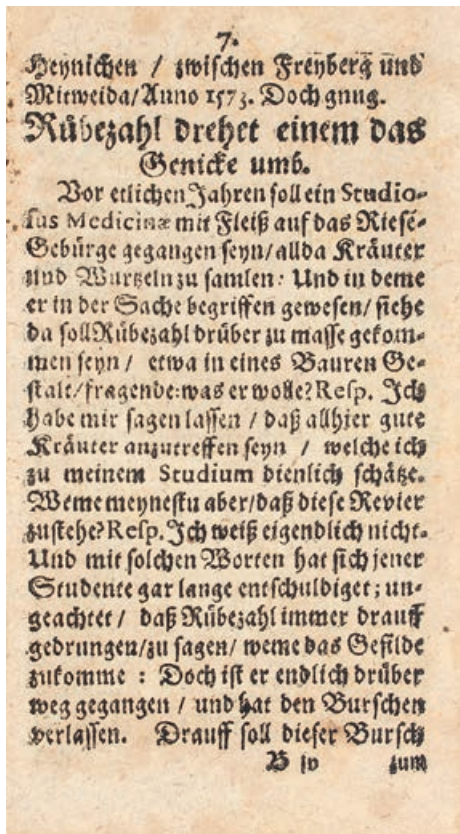 7.
Heynichen / zwischen Freyberg und
Mitweida/Anno 1573. Doch gnug.
Rübezahl drehet einem das
Genicke umb.
Vor etlichen Jahren soll ein Studio-
sus Medicinæ mit Fleiß auf das Riesē-
Gebürge gegangen seyn/allda Kräuter
und Wurtzeln zu samlen: Und in deme
er in der Sache begriffen gewesen/ siehe
da soll Rübezahl drüber zu masse gekom-
men seyn / etwa in eines Bauren Ge-
stalt/fragende: was er wolle? Resp. Ich
habe mir sagen lassen / daß allhier gute
Kräuter anzutreffen seyn / welche ich
zu meinem Studium dienlich schätze.
Weme meynestu aber/daß diese Revier
zustehe? Resp. Ich weiß eigendlich nicht.
Und mit solchen Worten hat sich jener
Studente gar lange entschuldiget; un-
geachtet / daß Rübezahl immer drauff
gedrungen/zu sagen/ weme das Gefilde
zukomme : Doch ist er endlich drüber
weg gegangen / und hat den Burschen
verlassen. Drauff soll dieser Bursch
B iv zum